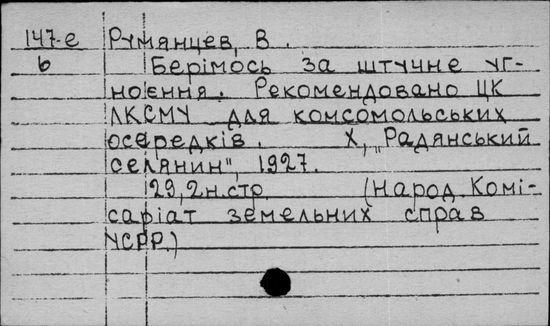 147-е Румянцев, В.
6 Берімось за штучне уг-
ноєння. Рекомендовано ЦК
ЛКСМУ для комсомольських
осередків. Х, „Радянський
селянин", 1927.
29,2н.стр. (Народ. Комі-
саріат земельних справ
УСРР.)